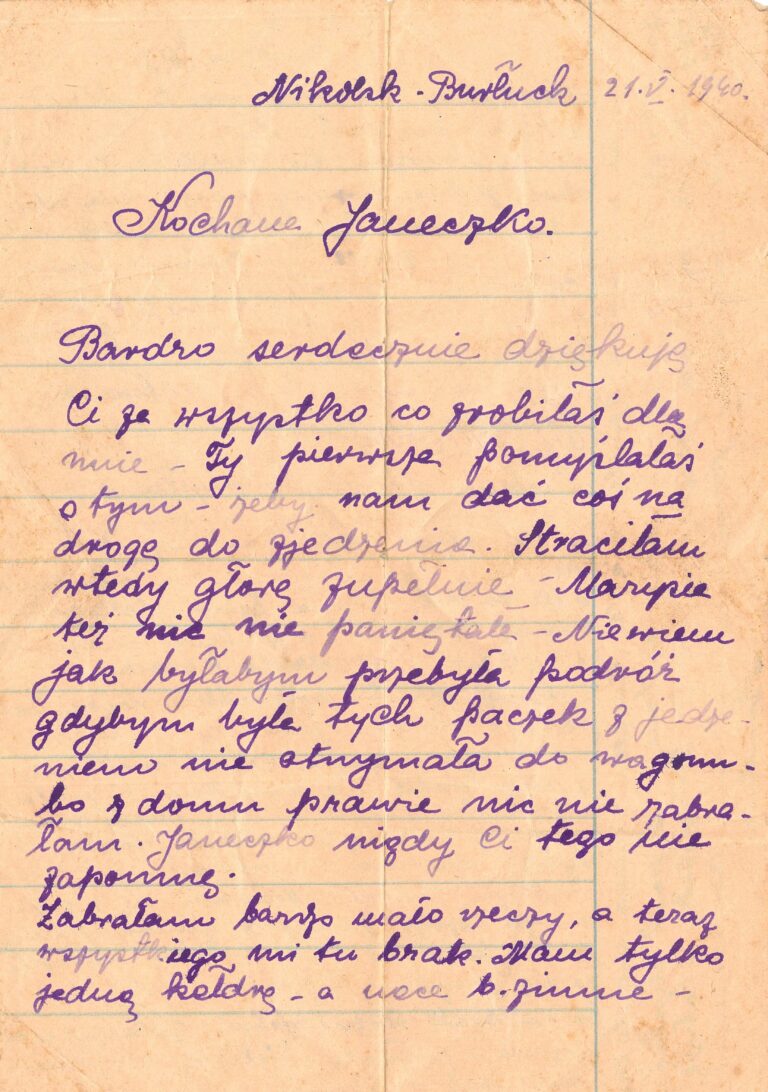 Nikolsk - Burłuck 21.V. 1940.
Kochana Janeczko.
Bardzo serdecznie dziękuję
Ci za wszystko co zrobiłaś dla
mnie - Ty pierwsza pomyślałaś
o tym - żeby nam dać coś na
drogę do zjedzenia. Straciłam
wtedy głowę zupełnie - Marysie
też nic nie pamiętała - Nie wiem
jak byłabym przebyła podróż
gdybym była tych paczek z jedze-
niem nie otrzymała do wagonu -
bo z domu prawie nic nie zabra-
łam. Janeczko nigdy Ci tego nie
zapomnę.
Zabrałam bardzo mało rzeczy, a teraz
wszystkiego mi tu brak. Mam tylko
jedną kołdrę - a noce b. zimne -